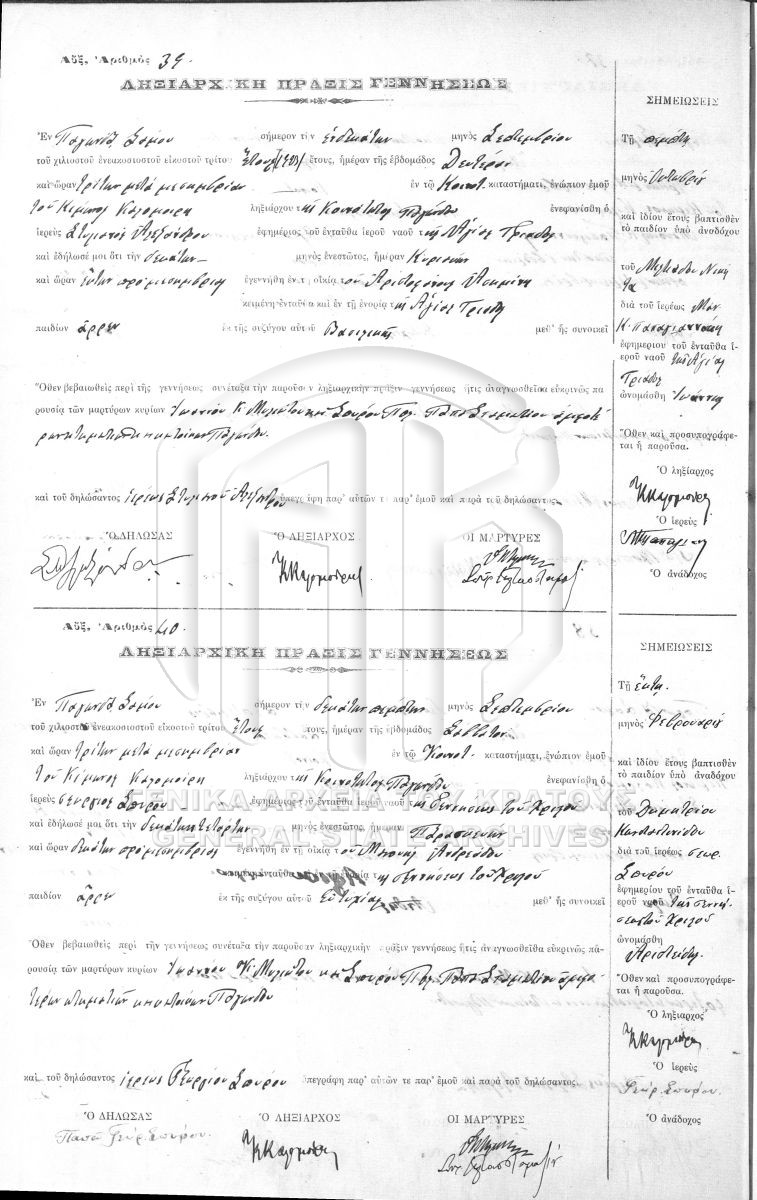 Αὔξ. Ἀριθμὸς 39.
ΛΗΞΙΑΡΧΙΚΗ ΠΡΑΞΙΣ ΓΕΝΝΗΣΕΩΣ
Ἐν Παγώνδᾳ Σάμου σήμερον τὴν ἑνδεκάτην μηνὸς Σεπτεμβρίου
τοῦ χιλιοστοῦ ἐνεακοσιοστοῦ εἰκοστοῦ τρίτου ἔτους, ἡμέραν τῆς ἑβδομάδος Δευτέραν
καὶ ὥραν τρίτην μετὰ μεσημβρίαν ἐν τῷ Κοινοτ. καταστήματι, ἐνώπιον ἐμοῦ
τοῦ Κίμωνος Καλομοίρη ληξιάρχου τῆς Κοινότητος Παγώνδου ἐνεφανίσθη ὁ
ἱερεὺς Στυμιανὸς ἐφημέριος τοῦ ἐνταῦθα ἱεροῦ ναοῦ τῆς Ἁγίας Τριάδος
καὶ ἐδήλωσέ μοι ὅτι τὴν δεκάτην μηνὸς ἐνεστῶτος, ἡμέραν Κυριακὴν
καὶ ὥραν ἕκτην πρὸ μεσημβρίας ἐγεννήθη ἐν τῇ οἰκίᾳ τοῦ
κειμένῃ ἐνταῦθα καὶ ἐν τῇ ἐνορίᾳ τῆς Ἁγίας Τριάδος
παιδίον ἄρρεν ἐκ τῆς συζύγου αὐτοῦ Βασιλικῆς μεθ' ἧς συνοικεῖ
Ὅθεν βεβαιωθεὶς περὶ τῆς γεννήσεως συνέταξα τὴν παροῦσαν ληξιαρχικὴν πρᾶξιν γεννήσεως ἥτις ἀναγνωσθεῖσα εὐκρινῶς πα-
ρουσίᾳ τῶν μαρτύρων κυρίων Ἰωάννου Κ. καὶ Σπύρου Παπᾶ Σταματίου
κατοίκων Παγώνδου
καὶ τοῦ δηλώσαντος ἱερέως ὑπεγράφη παρ' αὐτῶν τε παρ' ἐμοῦ καὶ παρὰ τοῦ δηλώσαντος.
Ὁ ΔΗΛΩΣΑΣ Ὁ ΛΗΞΙΑΡΧΟΣ ΟΙ ΜΑΡΤΥΡΕΣ
ΣΗΜΕΙΩΣΕΙΣ
Τῇ πέμπτῃ
μηνὸς Ὀκτωβρίου
καὶ ἰδίου ἔτους βαπτισθὲν
τὸ παιδίον ὑπὸ ἀναδόχου
τοῦ
διὰ τοῦ ἱερέως
Κ. Παπαγιαννάκη
ἐφημερίου τοῦ ἐνταῦθα ἱ-
εροῦ ναοῦ τῆς Ἁγίας
Τριάδος
ὠνομάσθη Ἰωάννης
Ὅθεν καὶ προσυπογράφε-
ται ἡ παροῦσα.
Ὁ ληξίαρχος
Ὁ ἱερεὺς
Ὁ ἀνάδοχος
Αὔξ. Ἀριθμὸς 40.
ΛΗΞΙΑΡΧΙΚΗ ΠΡΑΞΙΣ ΓΕΝΝΗΣΕΩΣ
Ἐν Παγώνδᾳ Σάμου σήμερον τὴν δεκάτην πέμπτην μηνὸς Σεπτεμβρίου
τοῦ χιλιοστοῦ ἐνεακοσιοστοῦ εἰκοστοῦ τρίτου ἔτους, ἡμέραν τῆς ἑβδομάδος Σάββατον
καὶ ὥραν τρίτην μετὰ μεσημβρίαν ἐν τῷ Κοινοτ. καταστήματι, ἐνώπιον ἐμοῦ
τοῦ Κίμωνος Καλομοίρη ληξιάρχου τῆς Κοινότητος Παγώνδου ἐνεφανίσθη ὁ
ἱερεὺς Γεώργιος Σπύρου ἐφημέριος τοῦ ἐνταῦθα ἱεροῦ ναοῦ τῆς Γεννήσεως τοῦ Χριστοῦ
καὶ ἐδήλωσέ μοι ὅτι τὴν δεκάτην τετάρτην μηνὸς ἐνεστῶτος, ἡμέραν Παρασκευὴν
καὶ ὥραν δεκάτην πρὸ μεσημβρίας ἐγεννήθη ἐν τῇ οἰκίᾳ τοῦ
κειμένῃ ἐνταῦθα τῆς Γεννήσεως τοῦ Χριστοῦ
παιδίον ἄρρεν ἐκ τῆς συζύγου αὐτοῦ Εὐτυχίας μεθ' ἧς συνοικεῖ
Ὅθεν βεβαιωθεὶς περὶ τὴν γεννήσεως συνέταξα τὴν παροῦσαν ληξιαρχικὴν πρᾶξιν γεννήσεως ἥτις ἀναγνωσθεῖσα εὐκρινῶς πα-
ρουσίᾳ τῶν μαρτύρων κυρίων Ἰωάννου Κ. καὶ Σπύρου Παπᾶ Σταματίου
κατοίκων Παγώνδου
καὶ τοῦ δηλώσαντος ἱερέως Γεωργίου Σπύρου ὑπεγράφη παρ' αὐτῶν τε παρ' ἐμοῦ καὶ παρὰ τοῦ δηλώσαντος.
Ὁ ΔΗΛΩΣΑΣ Ὁ ΛΗΞΙΑΡΧΟΣ ΟΙ ΜΑΡΤΥΡΕΣ
Παπᾶ Γεώρ. Σπύρου
ΣΗΜΕΙΩΣΕΙΣ
Τῇ ἕκτῃ
μηνὸς Φεβρουαρίου
καὶ ἰδίου ἔτους βαπτισθὲν
τὸ παιδίον ὑπὸ ἀναδόχου
τοῦ Δημητρίου
διὰ τοῦ ἱερέως Γεωρ.
Σπύρου
ἐφημερίου τοῦ ἐνταῦθα ἱ-
εροῦ ναοῦ τῆς Γεννή-
σεως τοῦ Χριστοῦ
ὠνομάσθη
Ἀριστείδης
Ὅθεν καὶ προσυπογράφε-
ται ἡ παροῦσα.
Ὁ ληξίαρχος
Ὁ ἱερεὺς
Γεώρ. Σπύρου
Ὁ ἀνάδοχος
ΓΕΝΙΚΑ ΑΡΧΕΙΑ ΤΟΥ ΚΡΑΤΟΥΣ
GENERAL STATE ARCHIVES